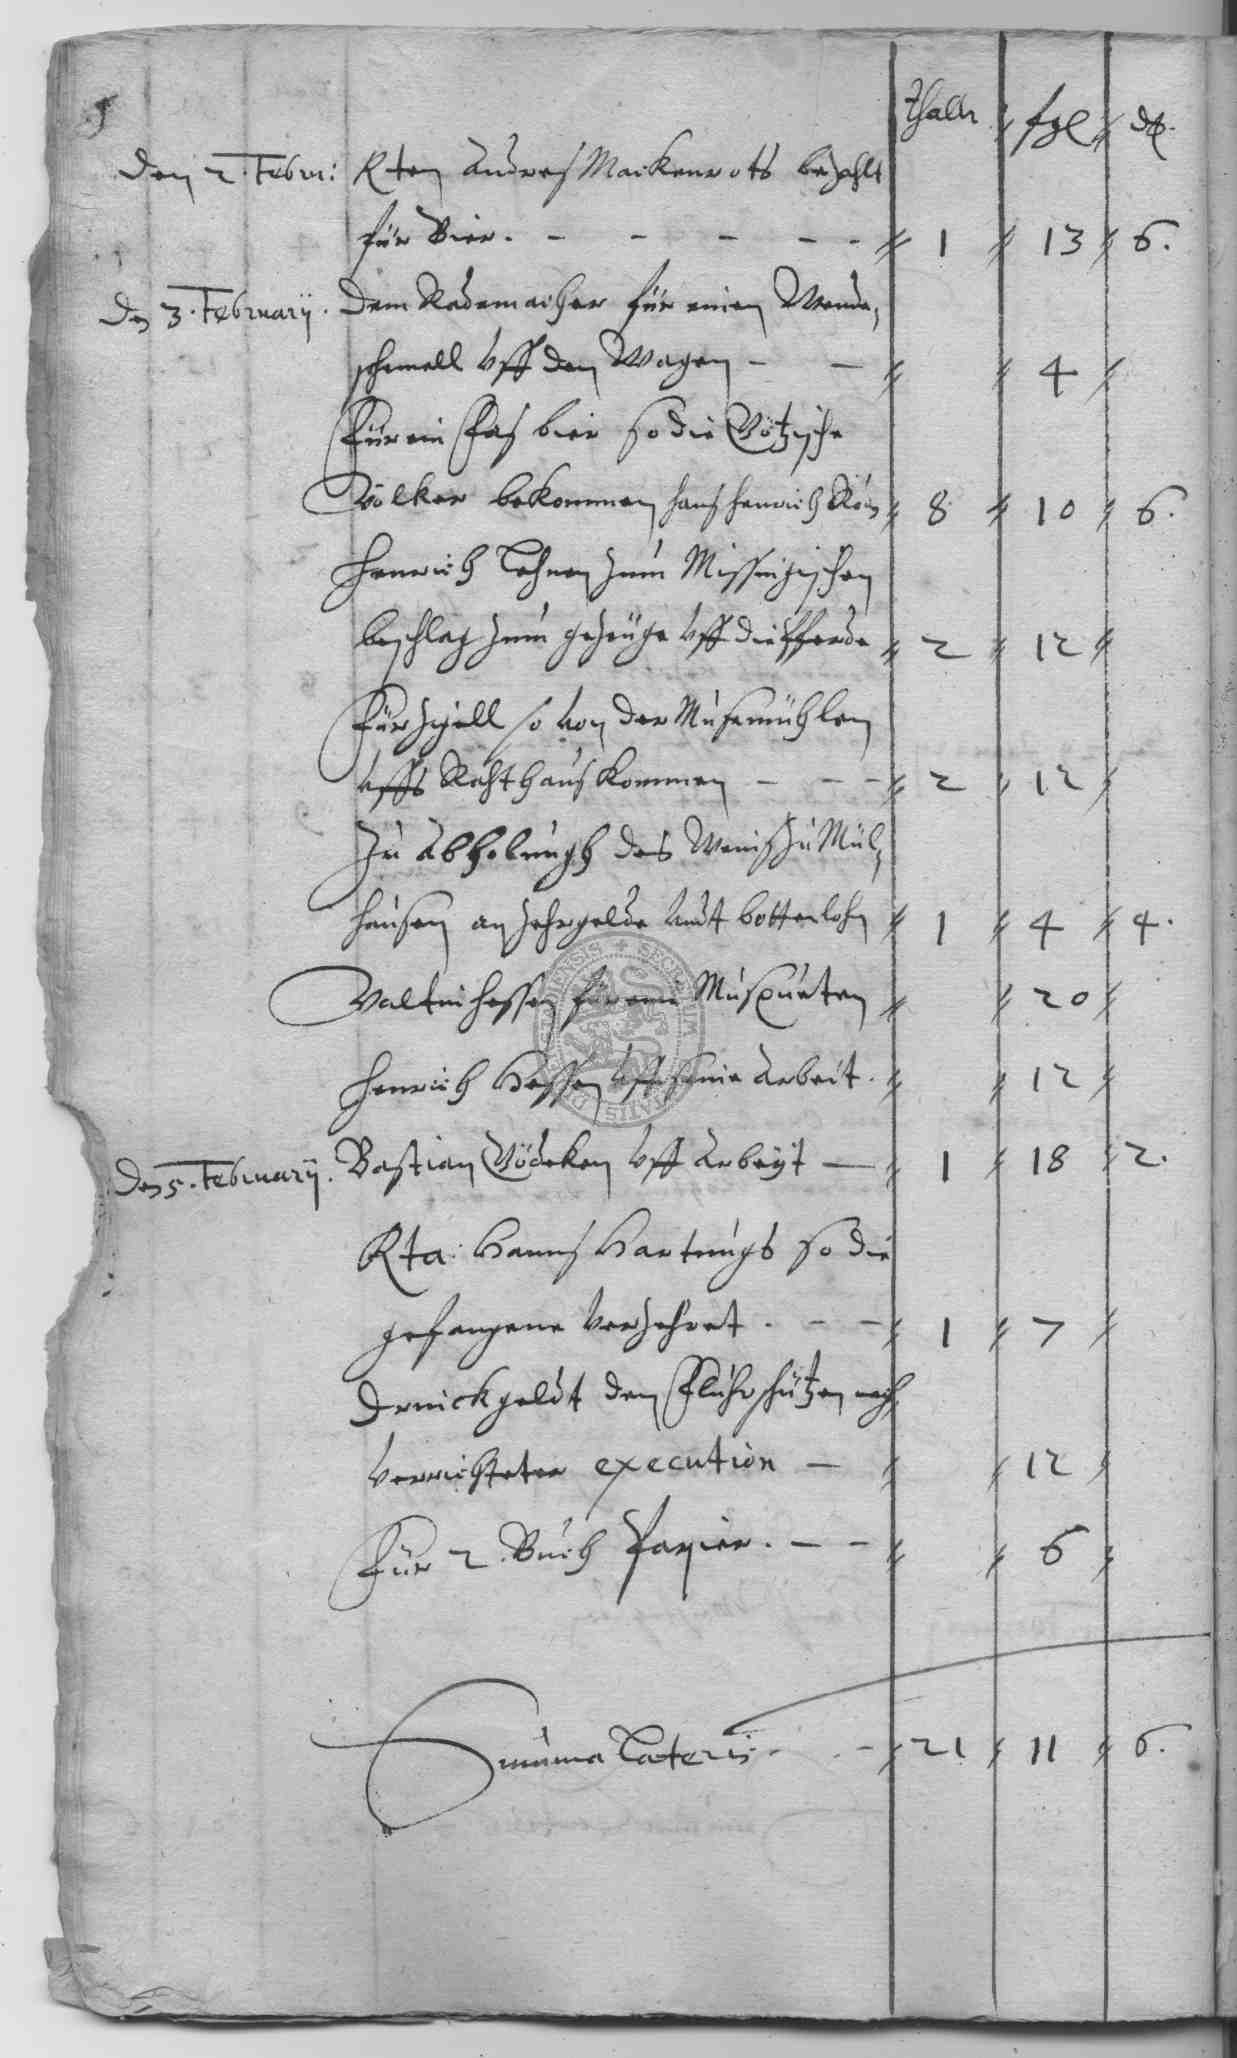 thaler fgl d
Den 2. Febru: Rten Andres Mackenrots bezahlt
für Bier. - - - - - 1 13 6.
Den 3. February. Dem Rademacher für einen Wende,
schemell vff den Wagen - - 4
Für ein Fas bier so die Götzische
Völker bekommen hans henrich 8 10 6.
Henrich Lehnen zum Missingischen
beschlag zum gezeuge vff die Pferde 2 12
Für so von der Musemühlen
vffs Rahthaus kommen - - - 2 12
Zu Abholungh des Weins zu Mül,
hausen an zehrgelde undt bottenlohn 1 4 4.
Valtin hessen für eine Musqueten 20
Henrich Hessen vff seine Arbeit. 12
Den 5. February. Bastian Gödeken vff Arbeyt - 1 18 2.
Rta Hanns Hartungs so die
gefangene verzehret. - - 1 7
Drinckgeldt den Fluhrschützen nach
verrichteter execution - 12
Für 2 Buch Papier. - - 6
Summa Lateris. - - 21 11 6.